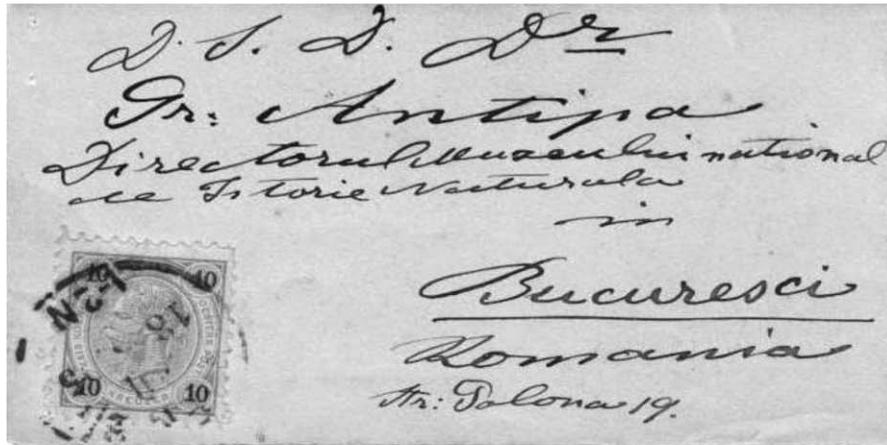 D. S. D. Dr
Gr: Antipa
Directorul Museului national
de Istorie Naturala
in
Bucuresci
Romania
Str: Polona 19.
10 10
10 10